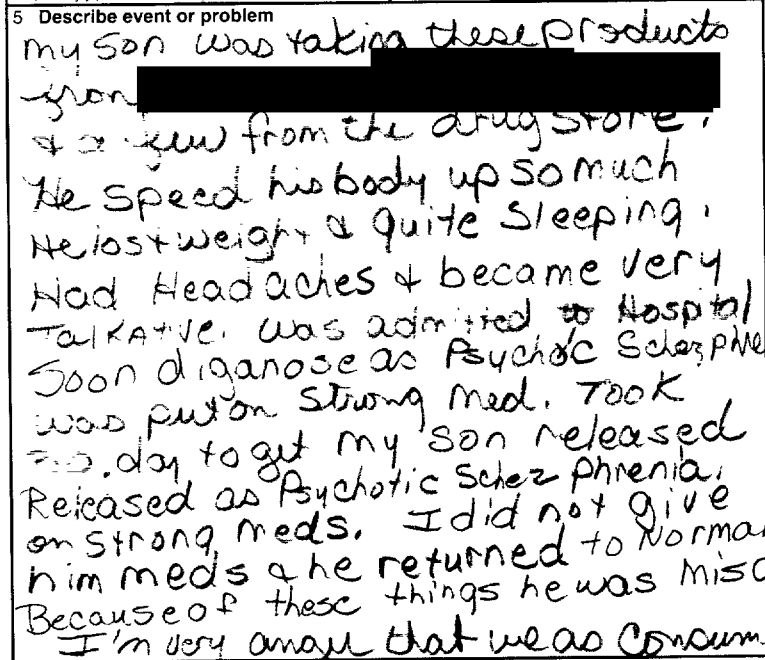 5 Describe event or problem
my son was taking these products
from
& a few from the drug store.
He speed his body up so much
He lost weight & quite sleeping.
Had Headaches & became very
Talkative. was admitted to Hospital
Soon diganose as Psychoic Schezphre
was put on strong med. Took
day to get my son released
Released as Psychotic Schez Phrenia.
on strong meds. I did not give
him meds & he returned to Norma
Because of these things he was misd
I'm very angry that we as Consum